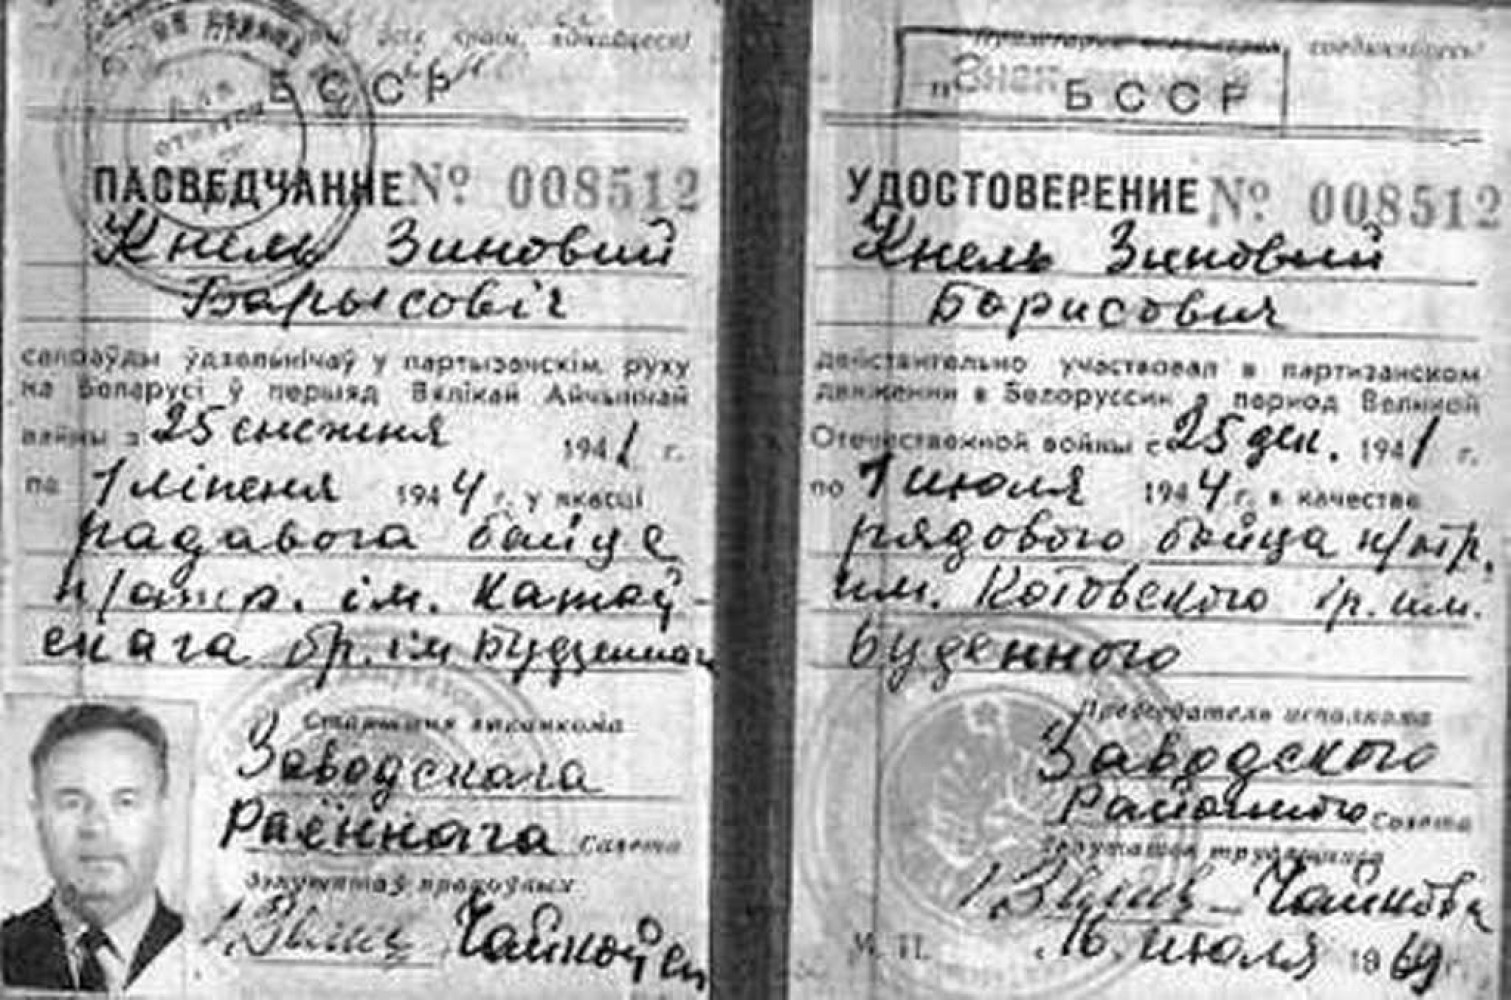 усіх краін, яднайцеся!
БССР
ПАСВЕДЧАННЕ № 008512
Кнель Зиновий
Барысовіч
сапраўды ўдзельнічаў у партызанскім руху
на Беларусі ў перыяд Вялікай Айчыннай
вайны з 25 снежня 1941 г.
па 1 ліпеня 1944 г. у якасці
радавога байца
п/атр. ім. Катоў-
скага бр. ім Будзеннаг
Старшыня выканкома
Заводскага
Раённага Савета
дэпутатаў працоўных
Чайкоўск
Пролетарии всех стран, соединяйтесь!
"Знак
БССР
УДОСТОВЕРЕНИЕ № 008512
Кнель Зиновий
Борисович
действительно участвовал в партизанском
движении в Белоруссии в период Великой
Отечественной войны с 25 дек. 1941 г.
по 1 июля 1944 г. в качестве
рядового бойца п/отр.
им. Котовского бр. им.
Буденного
Председатель исполкома
Заводского
Районного Совета
депутатов трудящихся
Чайковск
М. П. 16 июля 1969 г.